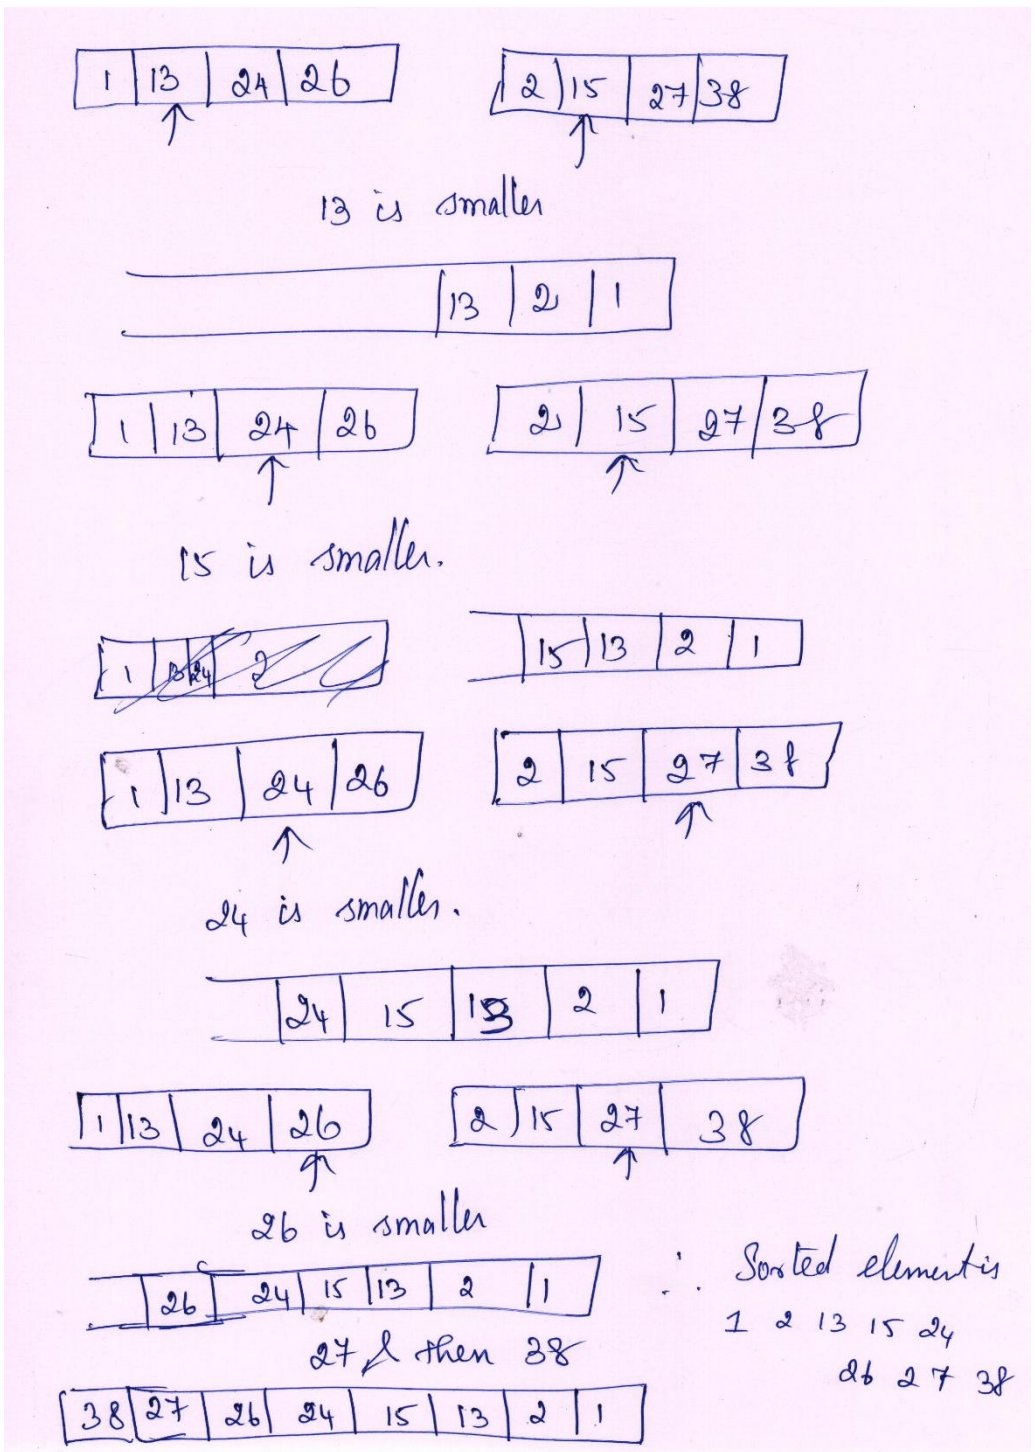 1 13 24 26 2 15 27 38
13 is smaller
13 2 1
1 13 24 26 2 15 27 38
15 is smaller.
1 13 24 2
15 13 2 1
1 13 24 26 2 15 27 38
24 is smaller.
24 15 13 2 1
1 13 24 26 2 15 27 38
26 is smaller
26 24 15 13 2 1
27 & then 38
38 27 26 24 15 13 2 1
∴ Sorted element is
1 2 13 15 24
26 27 38